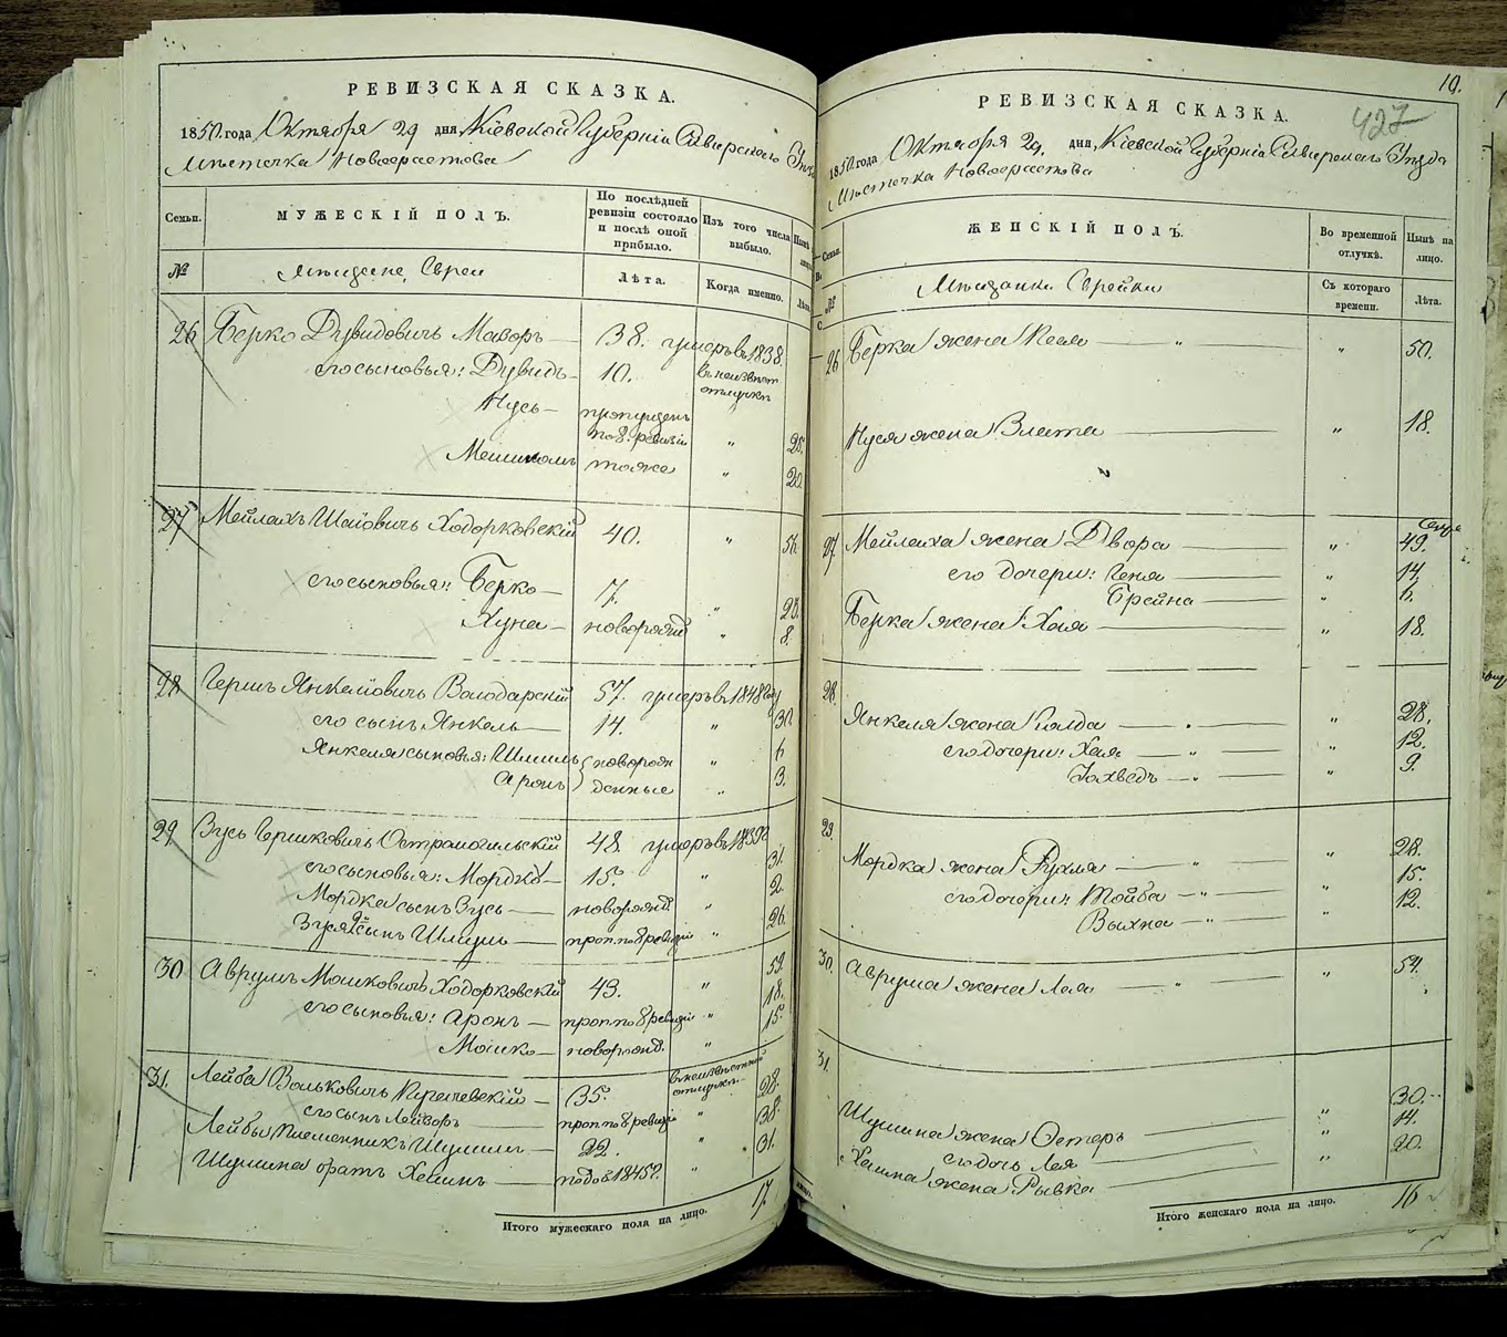 РЕВИЗСКАЯ СКАЗКА.
1850. года Октября 29 дня, Кіевской Губерніи Сквирскаго Уѣзда
Мѣстечка Новохрастова
Семьи.
МУЖЕСКІЙ ПОЛЪ.
По послѣдней ревизіи состояло и послѣ оной прибыло.
Изъ того числа выбыло.
№
Мѣщане Евреи
Лѣта.
Когда именно.
Лѣта
26 Берко Дувидовичь Мазоръ 38. умеръ въ 1838.
его сыновья: Дувидъ 10. въ неизвѣст. отлучкѣ
Нусь пропущенъ по 8. ревизіи " 25.
тоже " 20
27 Мейлахъ Шаіовичь Ходорковскій 40. " 56.
его сыновья: Берко 7. " 23.
Хуна новорожд " 8.
28 Гершъ Янкеліовичь Володарскій 57. умеръ въ 1848 году
его сынъ Янкель 14. " 30.
Янкеля сыновья: Шмиль новорож " 6
Аронъ денные " 3.
29 Зусь Гершковичь Острамогильскій 48. умеръ въ 1839
его сыновья: Мордко 15. " 31.
Мордка сынъ Зусь новорожд. " 2.
Зуся 2й сынъ Шмуль проп. по 8 ревизіи " 26.
30 Аврумъ Мошковичь Ходорковскій 43. " 59.
его сыновья: Аронъ проп. по 8 ревизіи " 18.
Мошко новорожд. " 15.
31. Лейба Вольковичь 35. въ неизвѣстной отлучкѣ
его сынъ Лейзоръ проп. по 8 ревизіи " 28.
Лейбы племенникъ Шулимъ 22. " 38.
Шулима братъ Хаимъ 1845 " 31.
Итого мужескаго пола на лицо. 17.
19.
427
РЕВИЗСКАЯ СКАЗКА.
1850. года Октября 29. дня, Кіевской Губерніи Сквирскаго Уѣзда
Мѣстечка Новохрастова
Семьи.
ЖЕНСКІЙ ПОЛЪ.
Во временной отлучкѣ.
Нынѣ на лицо.
№
Мѣщанки Еврейки
Съ котораго времени.
Лѣта.
26 Берка жена " " 50.
Нуся жена Злата " 18.
27. Мейлаха жена Двора " 49.
его дочери: Геня " 14.
Брейна " 6.
Берка жена Хая " 18.
28. Янкеля жена Голда " 28.
его дочери: Хая " " 12.
Іохведъ " " 9.
29. Мордка жена Рухля " " 28.
его дочери: Тойба " " 15.
Выхна " " 12.
30. Аврума жена Лея " " 54.
31.
Шулима жена Эстеръ " 30.
его дочь Лея " 14.
Хаима жена Рывка " 20.
Итого женскаго пола на лицо. 16